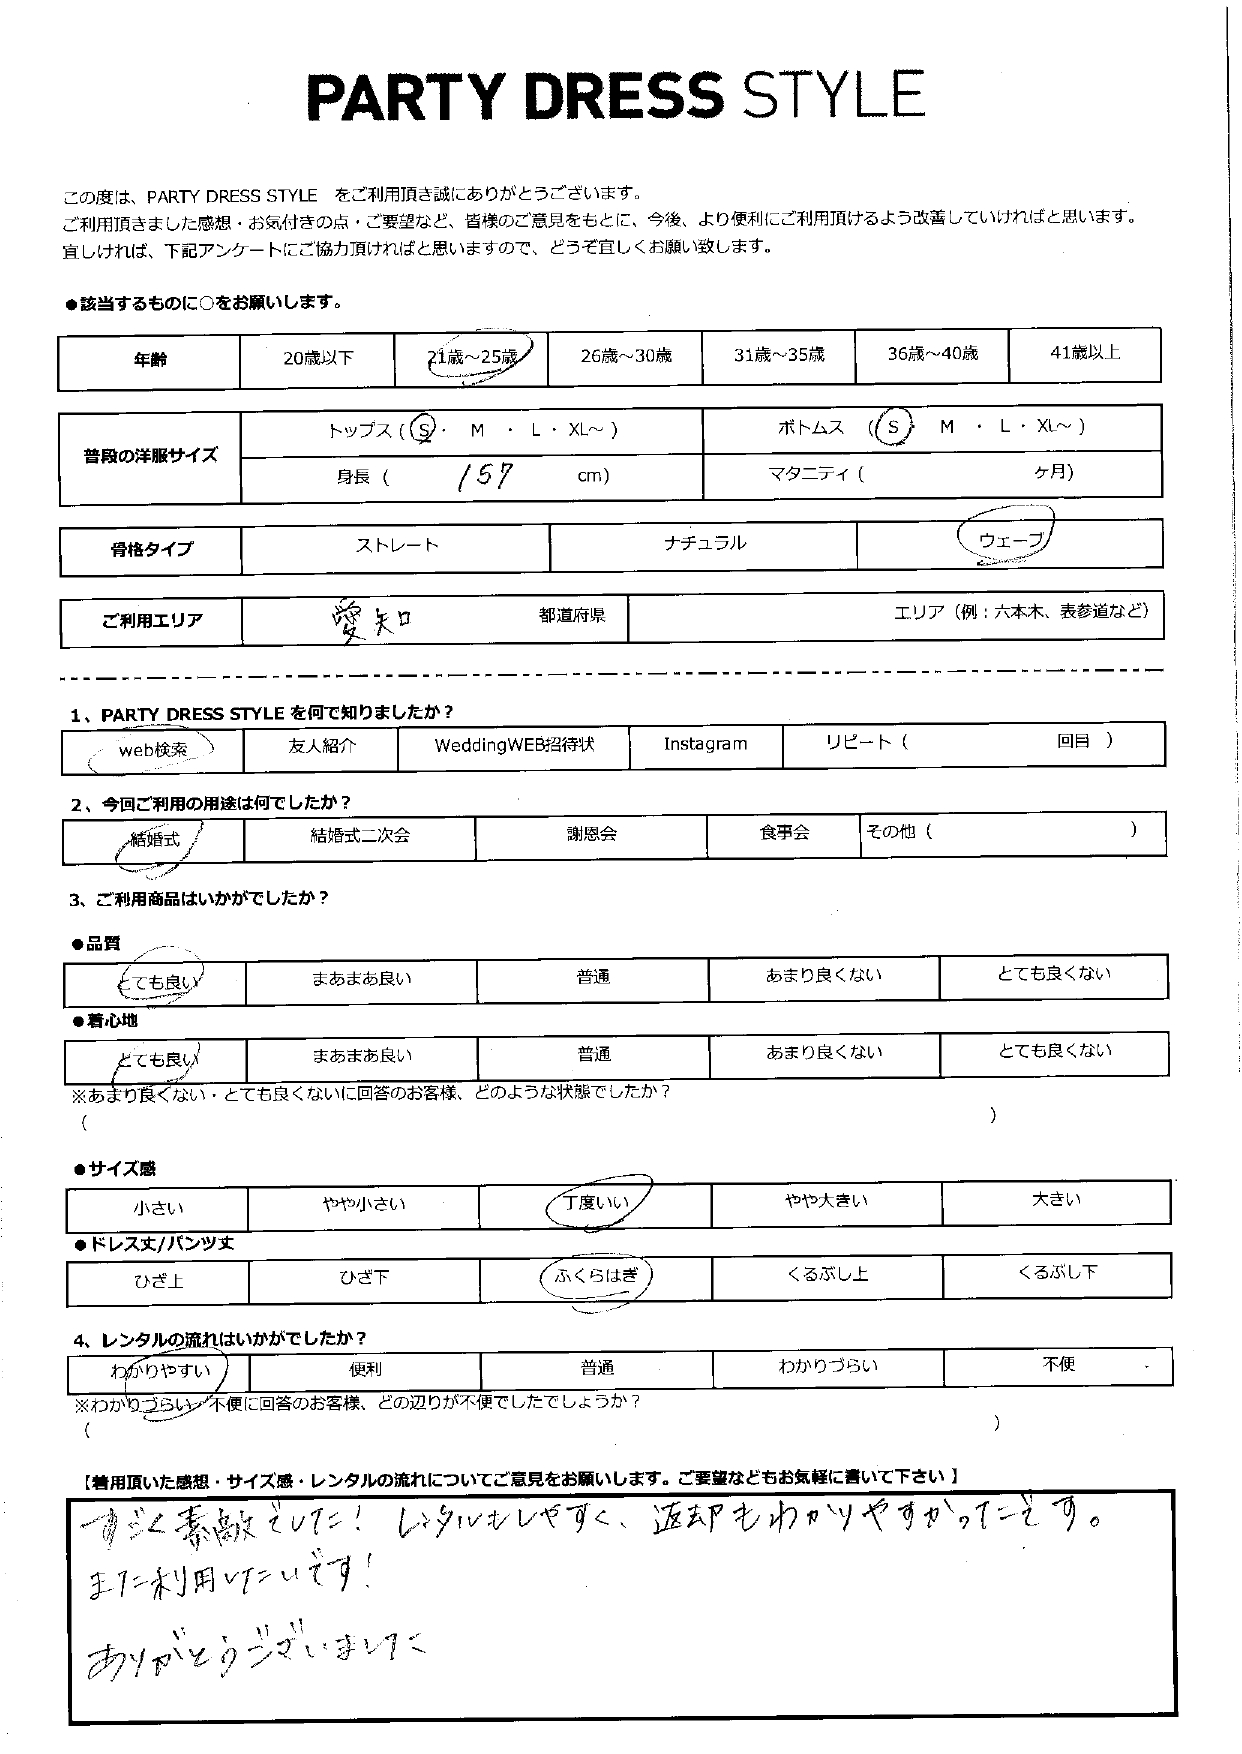 PARTY DRESS STYLE
この度は、PARTY DRESS STYLE をご利用頂き誠にありがとうございます。
ご利用頂きました感想・お気付きの点・ご要望など、皆様のご意見をもとに、今後、より便利にご利用頂けるよう改善していければと思います。
宜しければ、下記アンケートにご協力頂ければと思いますので、どうぞ宜しくお願い致します。
●該当するものに○をお願いします。
年齢 20歳以下 21歳～25歳 26歳～30歳 31歳～35歳 36歳～40歳 41歳以上
普段の洋服サイズ
トップス ( S ・ M ・ L ・ XL～ ) ボトムス ( S ・ M ・ L ・ XL～ )
身長 ( 157 cm) マタニティ ( ヶ月)
骨格タイプ ストレート ナチュラル ウェーブ
ご利用エリア 愛知 都道府県 エリア（例：六本木、表参道など）
1、PARTY DRESS STYLE を何で知りましたか？
web検索 友人紹介 WeddingWEB招待状 Instagram リピート ( 回目 )
2、今回ご利用の用途は何でしたか？
結婚式 結婚式二次会 謝恩会 食事会 その他 ( )
3、ご利用商品はいかがでしたか？
●品質
とても良い まあまあ良い 普通 あまり良くない とても良くない
●着心地
とても良い まあまあ良い 普通 あまり良くない とても良くない
※あまり良くない・とても良くないに回答のお客様、どのような状態でしたか？
( )
●サイズ感
小さい やや小さい 丁度いい やや大きい 大きい
●ドレス丈/パンツ丈
ひざ上 ひざ下 ふくらはぎ くるぶし上 くるぶし下
4、レンタルの流れはいかがでしたか？
わかりやすい 便利 普通 わかりづらい 不便
※わかりづらい・不便に回答のお客様、どの辺りが不便でしたでしょうか？
( )
【着用頂いた感想・サイズ感・レンタルの流れについてご意見をお願いします。ご要望などもお気軽に書いて下さい】
すごく素敵でした！ レンタルもしやすく、返却もわかりやすかったです。
また利用したいです！
ありがとうございました